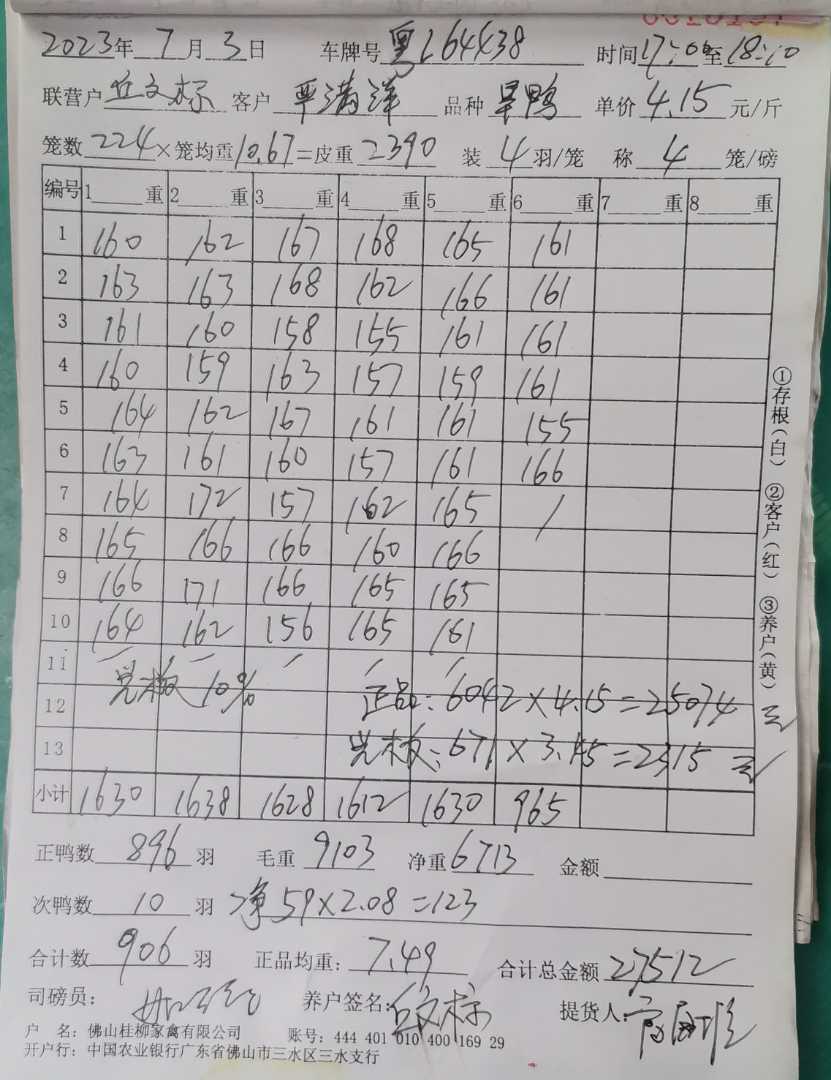 2023年 7 月 3 日 车牌号 粤L64438 时间 17:00 至 18:10
联营户 丘文标 客户 严满洋 品种 旱鸭 单价 4.15 元/斤
笼数 224 ×笼均重 10.67 =皮重 2390 装 4 羽/笼 称 4 笼/磅
编号 1 重 2 重 3 重 4 重 5 重 6 重 7 重 8 重
1 160 162 167 168 165 161
2 163 163 168 162 166 161
3 161 160 158 155 161 161
4 160 159 163 157 159 161
5 164 162 167 161 161 155
6 163 161 160 157 161 166
7 164 172 157 162 165 /
8 165 166 166 160 166
9 166 171 166 165 165
10 164 162 156 165 161
11
12 光板 10% 正品: 6042 × 4.15 = 25074 元
13 光板: 671 × 3.45 = 2315 元
小计 1630 1638 1628 1612 1630 965
正鸭数 896 羽 毛重 9103 净重 6713 金额
次鸭数 10 羽 净 59×2.08=123
合计数 906 羽 正品均重: 7.49 合计总金额 27512
司磅员: 养户签名: 丘文标 提货人:
户 名: 佛山桂柳家禽有限公司 账号: 444 401 010 400 169 29
开户行: 中国农业银行广东省佛山市三水区三水支行
①存根(白) ②客户(红) ③养户(黄)